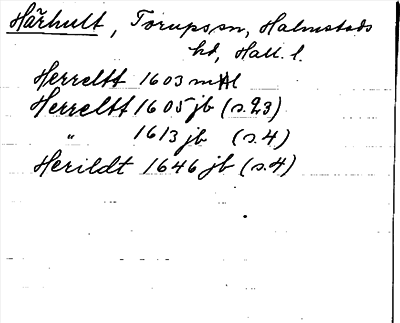 Härhult, Torups sn, Halmstads
hd, Hall. l.
Herreltt 1603 mtl
Herreltt 1605 jb (s. 23)
" 1613 jb (s. 4)
Herildt 1646 jb (s. 4)